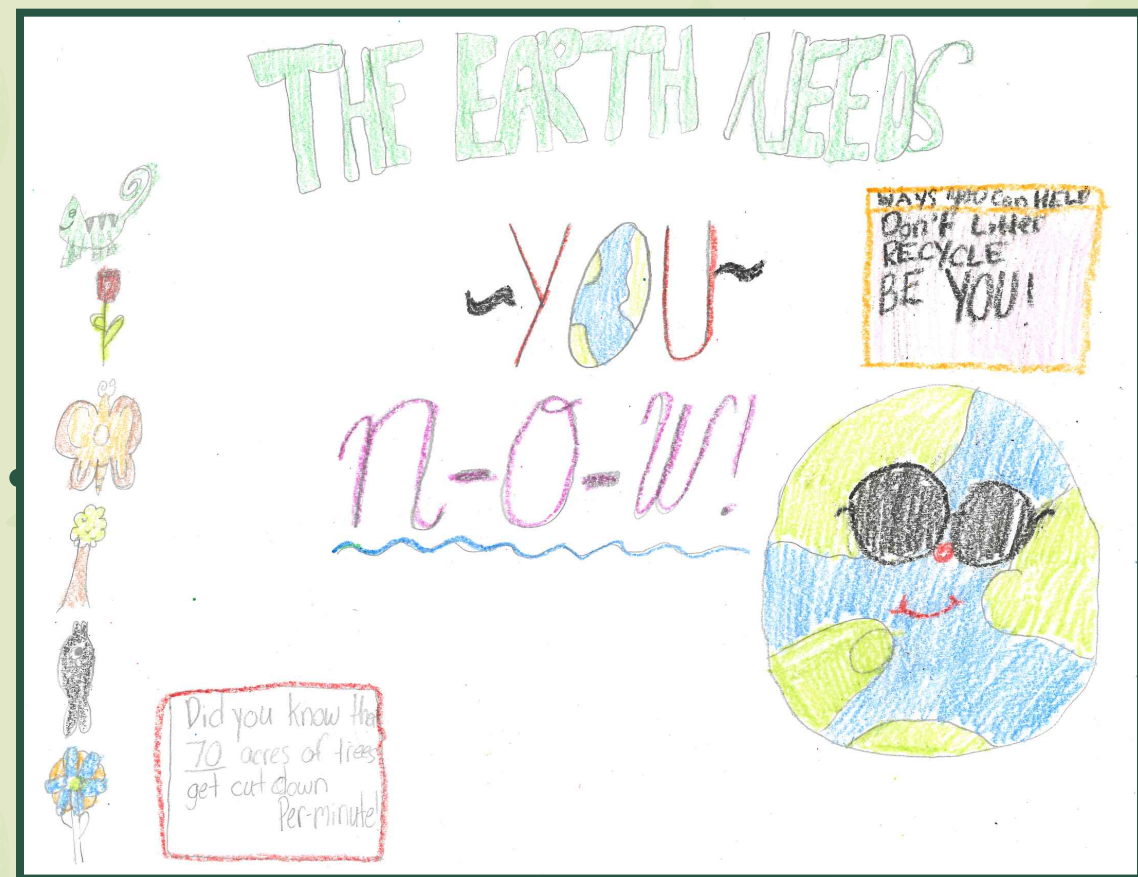 THE EARTH NEEDS
~YOU~
WAYS YOU Can HELP
Don't Litter
RECYCLE
BE YOU!
n-O-W!
Did you know that
70 acres of trees
get cut down
Per-minute!